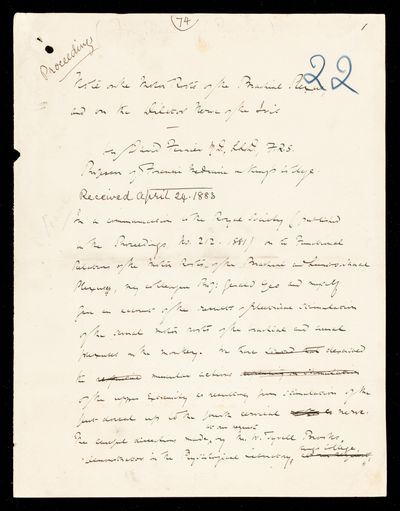 74
1
Proceedings
22
Note on the Motor Roots of the Brachial Plexus,
and on the Dilator Nerve of the Iris
—
by David Ferrier M.D., LL.D., F.R.S.
Professor of Forensic Medicine in King's College.
Received April 24. 1883
In a communication to the Royal Society (published
in the Proceedings, No. 212. 1881) on the Functional
Relations of the Motor Roots of the Brachial and Lumbo-Sacral
Plexuses, my colleague Prof. Gerald Yeo and myself
gave an account of the results of electrical stimulation
of the several motor roots of the brachial and crural
plexuses in the monkey. We have described
the muscular actions
of the upper extremity as resulting from stimulation of the
first dorsal up to the fourth cervical nerve.
at our request
The careful dissections made, by Mr. W. Tyrrell Brooks,
King's College,
Demonstrator in the Physiological Laboratory,